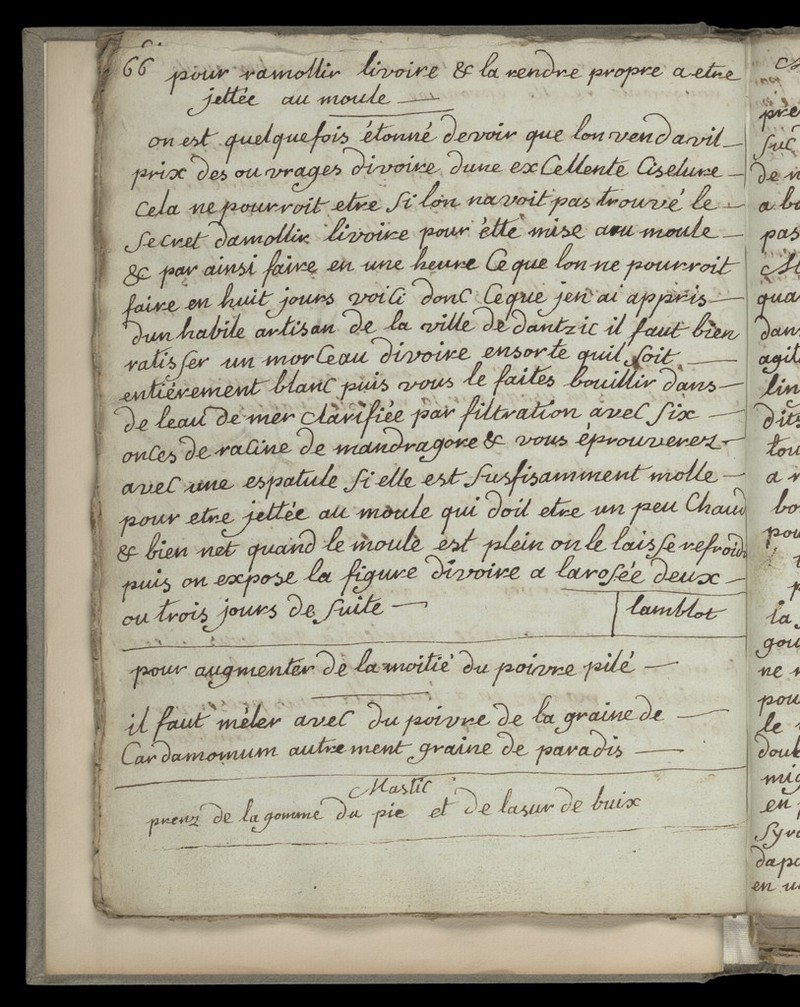 66 pour ramollir livoire & la rendre propre a etre
jettée au moule —
on est quelquefois étonné devoir que lon vend a vil —
prix des ou vrages divoire dune exCellente Ciselure —
Cela ne pourroit etre Si lon navoit pas trouvé le —
SeCret damollir livoire pour étte mise au moule —
& par ainsi faire en une heure Ce que lon ne pourroit
faire en huit jours voiCi donC Ceque jen ai appris —
dun habile artisan de la ville de dantzic il faut bien
ratisser un morCeau divoire ensorte quil Soit —
entiérement blanC puis vous le faites bouillir dans —
de leau de mer clarifiée par filtration aveC Six —
onCes de raCine de mandragore & vous éprouverez —
aveC une espatule Si elle est Susfisamment molle —
pour etre jettée au moule qui doit etre un peu Chaud
& bien net quand le moule est plein on le laisse refroidi
puis on expose la figure divoire a larosée deux —
ou trois jours de Suite — lamblot
pour augmenter de la moitié du poivre pilé —
il faut méler aveC du poivre de la graine de —
Cardamomum autrement graine de paradis —
MastiC
prenz de la gomme du pie et de lasur de buix
pre
SuC
de
pas
qua
dan
agit
lin
dits
tou
a
bo
pou
la
gou
ne
pou
le
doul
mig
en
Syr
dapo
en